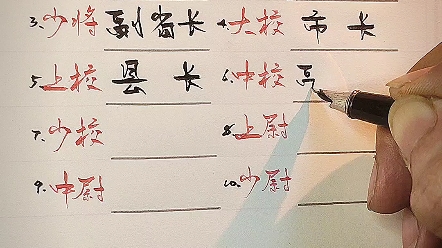 3. 少将 副省长 4. 大校 市长
5. 上校 县长 6. 中校
7. 少校 8. 上尉
9. 中尉 10. 少尉